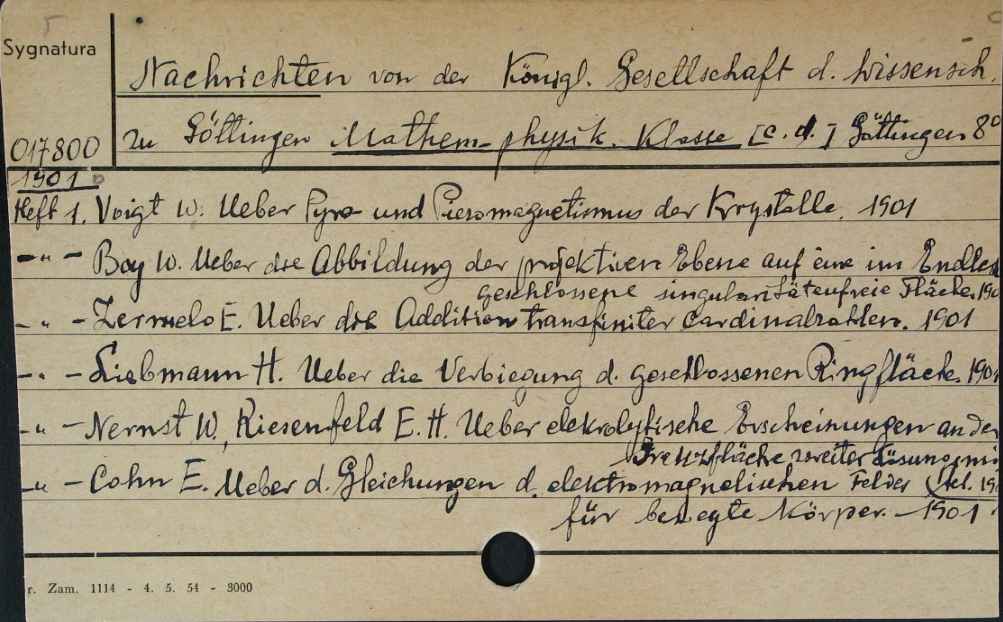 Sygnatura
Nachrichten von der Königl. Gesellschaft d. Wissensch.
017800 zu Göttingen Mathem-physik. Klasse [c.d.] Göttingen 8°
1901
Heft 1. Voigt W. Ueber Pyro- und Piezomagnetismus der Krystalle. 1901
- " - Boy W. Ueber die Abbildung der projektiven Ebene auf eine im Endlen
geschlossene singularitätenfreie Fläche. 190
- " - Zermelo E. Ueber die Addition transfiniter Cardinalzahlen. 1901
- " - Liebmann H. Ueber die Verbiegung d. geschlossenen Ringfläche. 1901
- " - Nernst W., Riesenfeld E. H. Ueber elektrolytische Erscheinungen an der
Grenzfläche zweiter
- " - Cohn E. Ueber d. Gleichungen d. elektromagnetischen Felder
für bewegte Körper. - 1901
r. Zam. 1114 - 4. 5. 54 - 3000